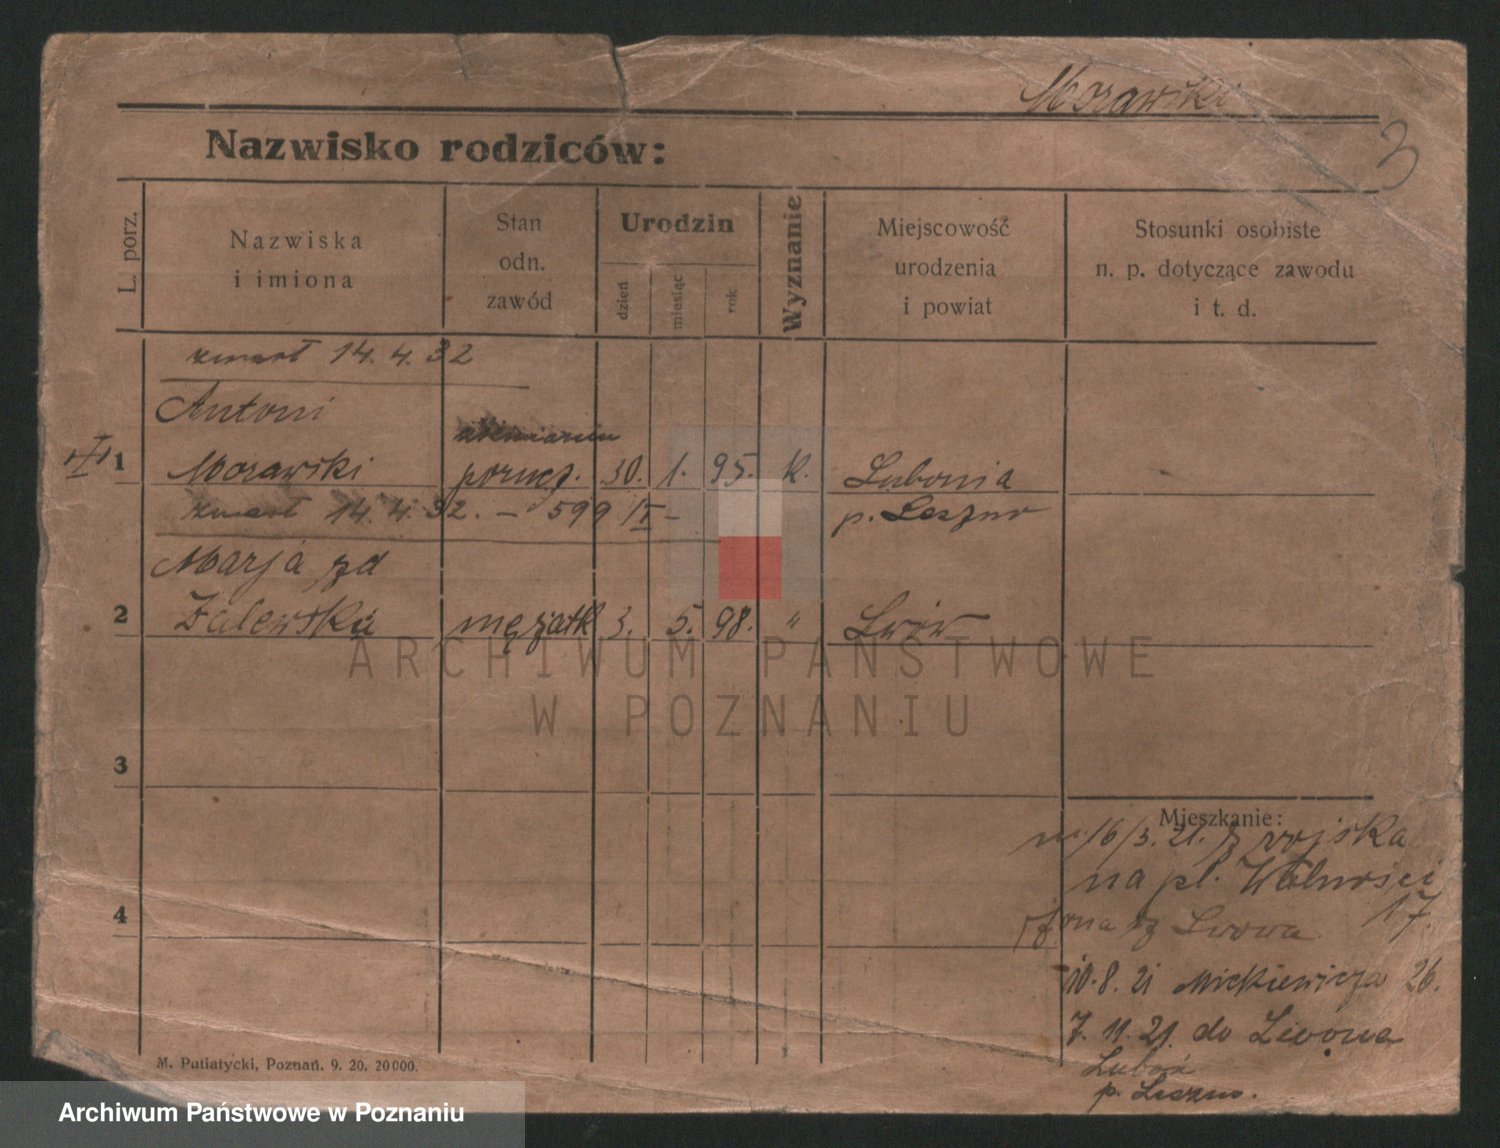 Morawski
3
Nazwisko rodziców:
L. porz.
Nazwiska
i imiona
Stan
odn.
zawód
Urodzin
dzień
miesiąc
rok
Wyznanie
Miejscowość
urodzenia
i powiat
Stosunki osobiste
n. p. dotyczące zawodu
i t. d.
zmarł 14. 4. 32
Antoni
1 Morawski porucz. 30. 1. 95. k. Lubonia
zmarł 14. 4. 32. – 599 II – p. Leszno
Marja zd
2 Zalewska mężatk 3. 5. 98. " Lwów
ARCHIWUM PAŃSTWOWE
W POZNANIU
3
Mieszkanie:
16/3. 21. z wojska
na pl. Wolności
17
4
żona z Lwowa
10. 8. 21 Mickiewicza 26.
7. 11. 21. do Lwowa
Luboń
p. Leszno.
M. Putiatycki, Poznań. 9. 20. 20 000.
Archiwum Państwowe w Poznaniu